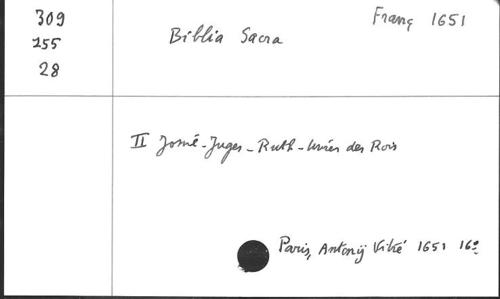 309
155
28
Franç 1651
Biblia Sacra
II Josué - Juges - Ruth - Livres des Rois
Paris, Antonij Vitré 1651 16º